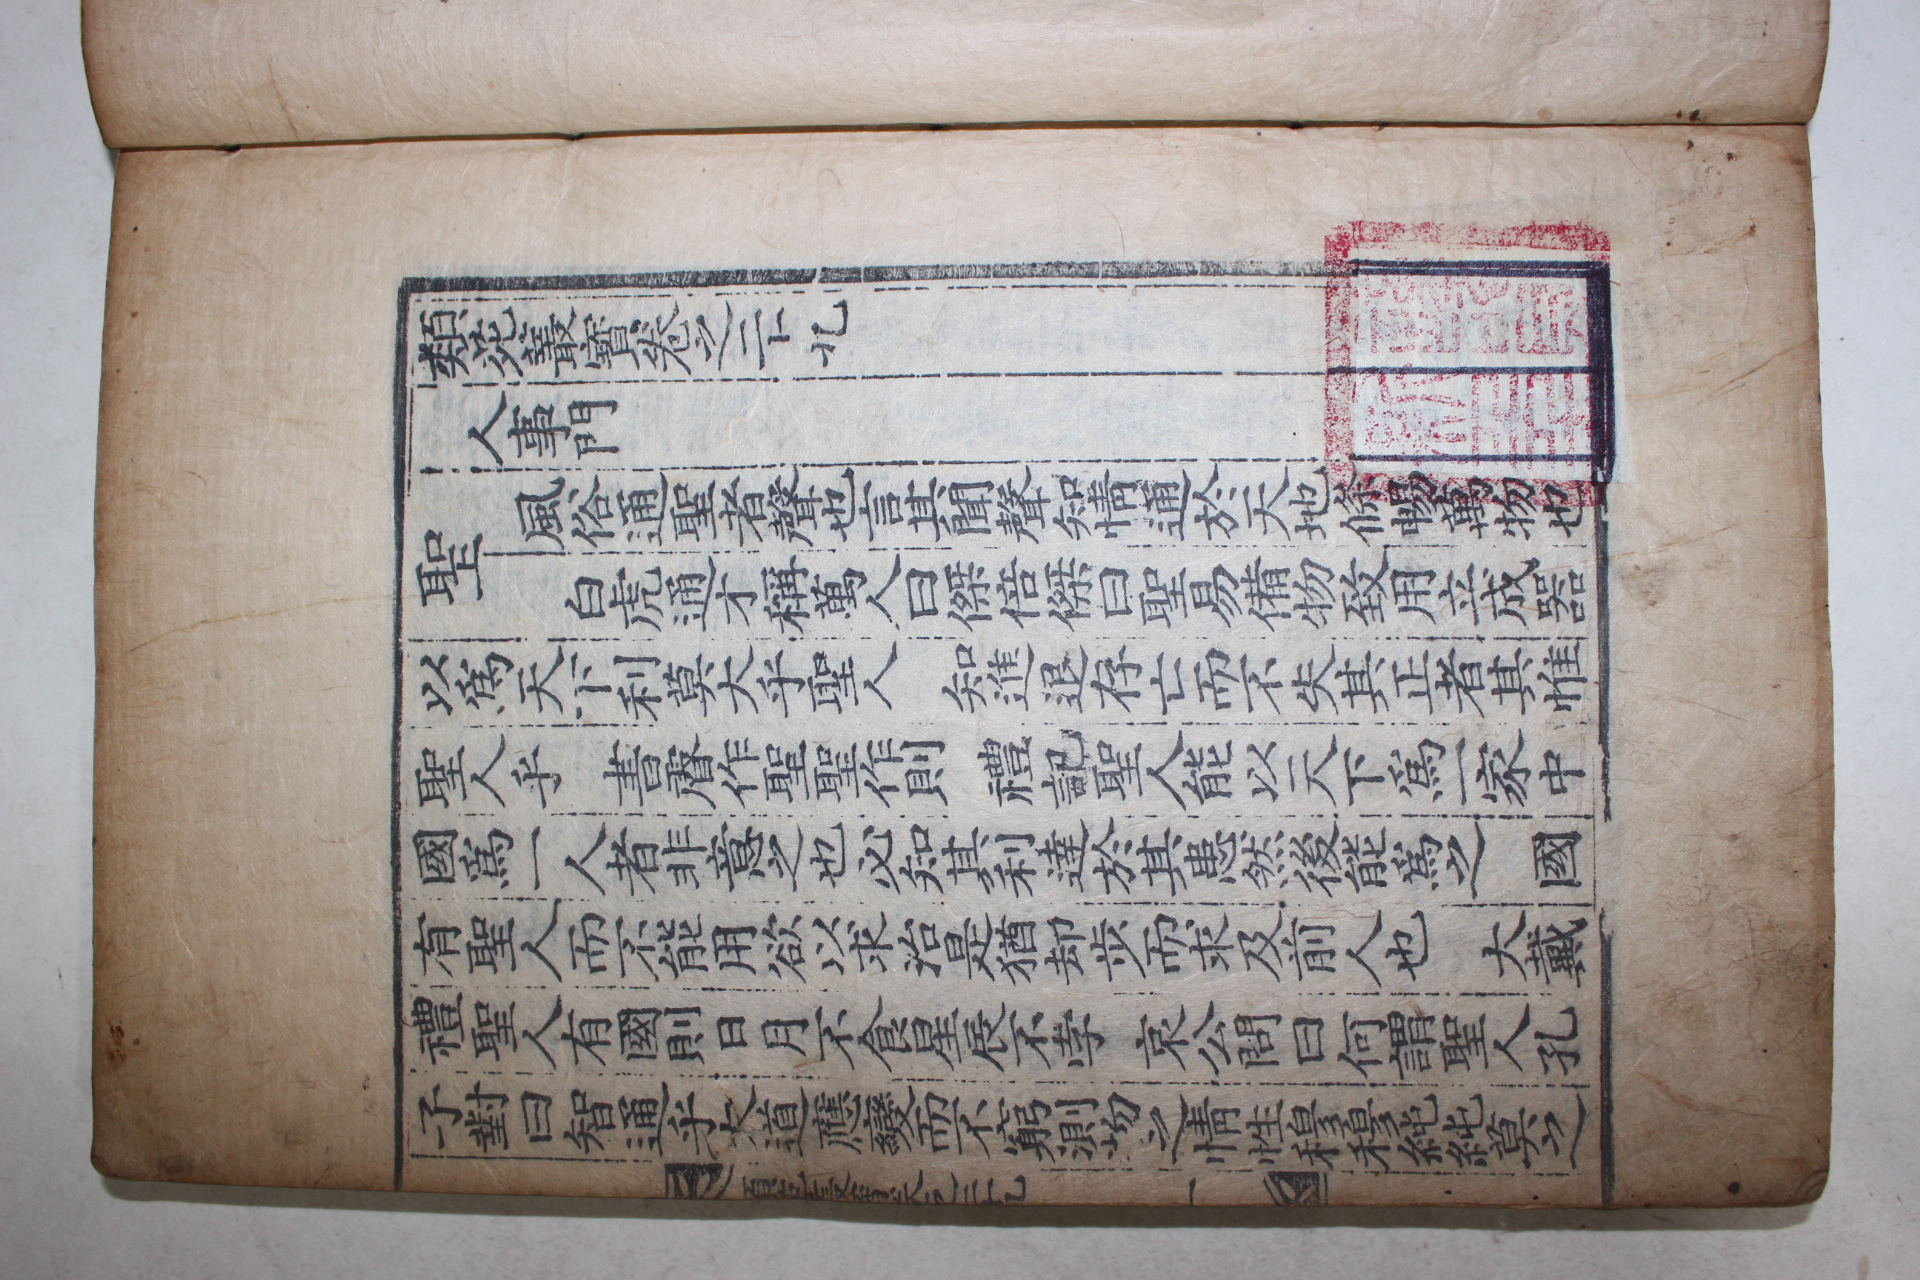 類苑叢寶卷之二十九
人事門
聖
風俗通聖者聲也言其聞聲知情通於天地條暢萬物也
白虎通才稱萬人曰傑倍傑曰聖易備物致用立成器
以爲天下利莫大乎聖人 知進退存亡而不失其正者其惟
聖人乎 書睿作聖聖作則 禮記聖人能以天下爲一家中
國爲一人者非意之也必知其利達於其患然後能爲之 國
有聖人而不能用欲以求治是猶却步而求及前人也 大戴
禮聖人有國則日月不食星辰不孛 哀公問曰何謂聖人孔
子對曰智通乎大道應變而不窮測物之情性穆穆純純莫之